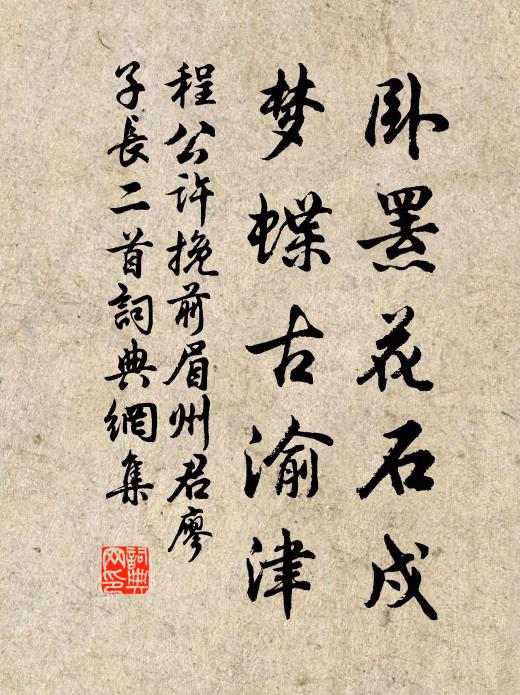 卧罴花石戍
梦蝶古渝津
程公许挽前眉州君廖
子长二首詞典網集
詞典网印